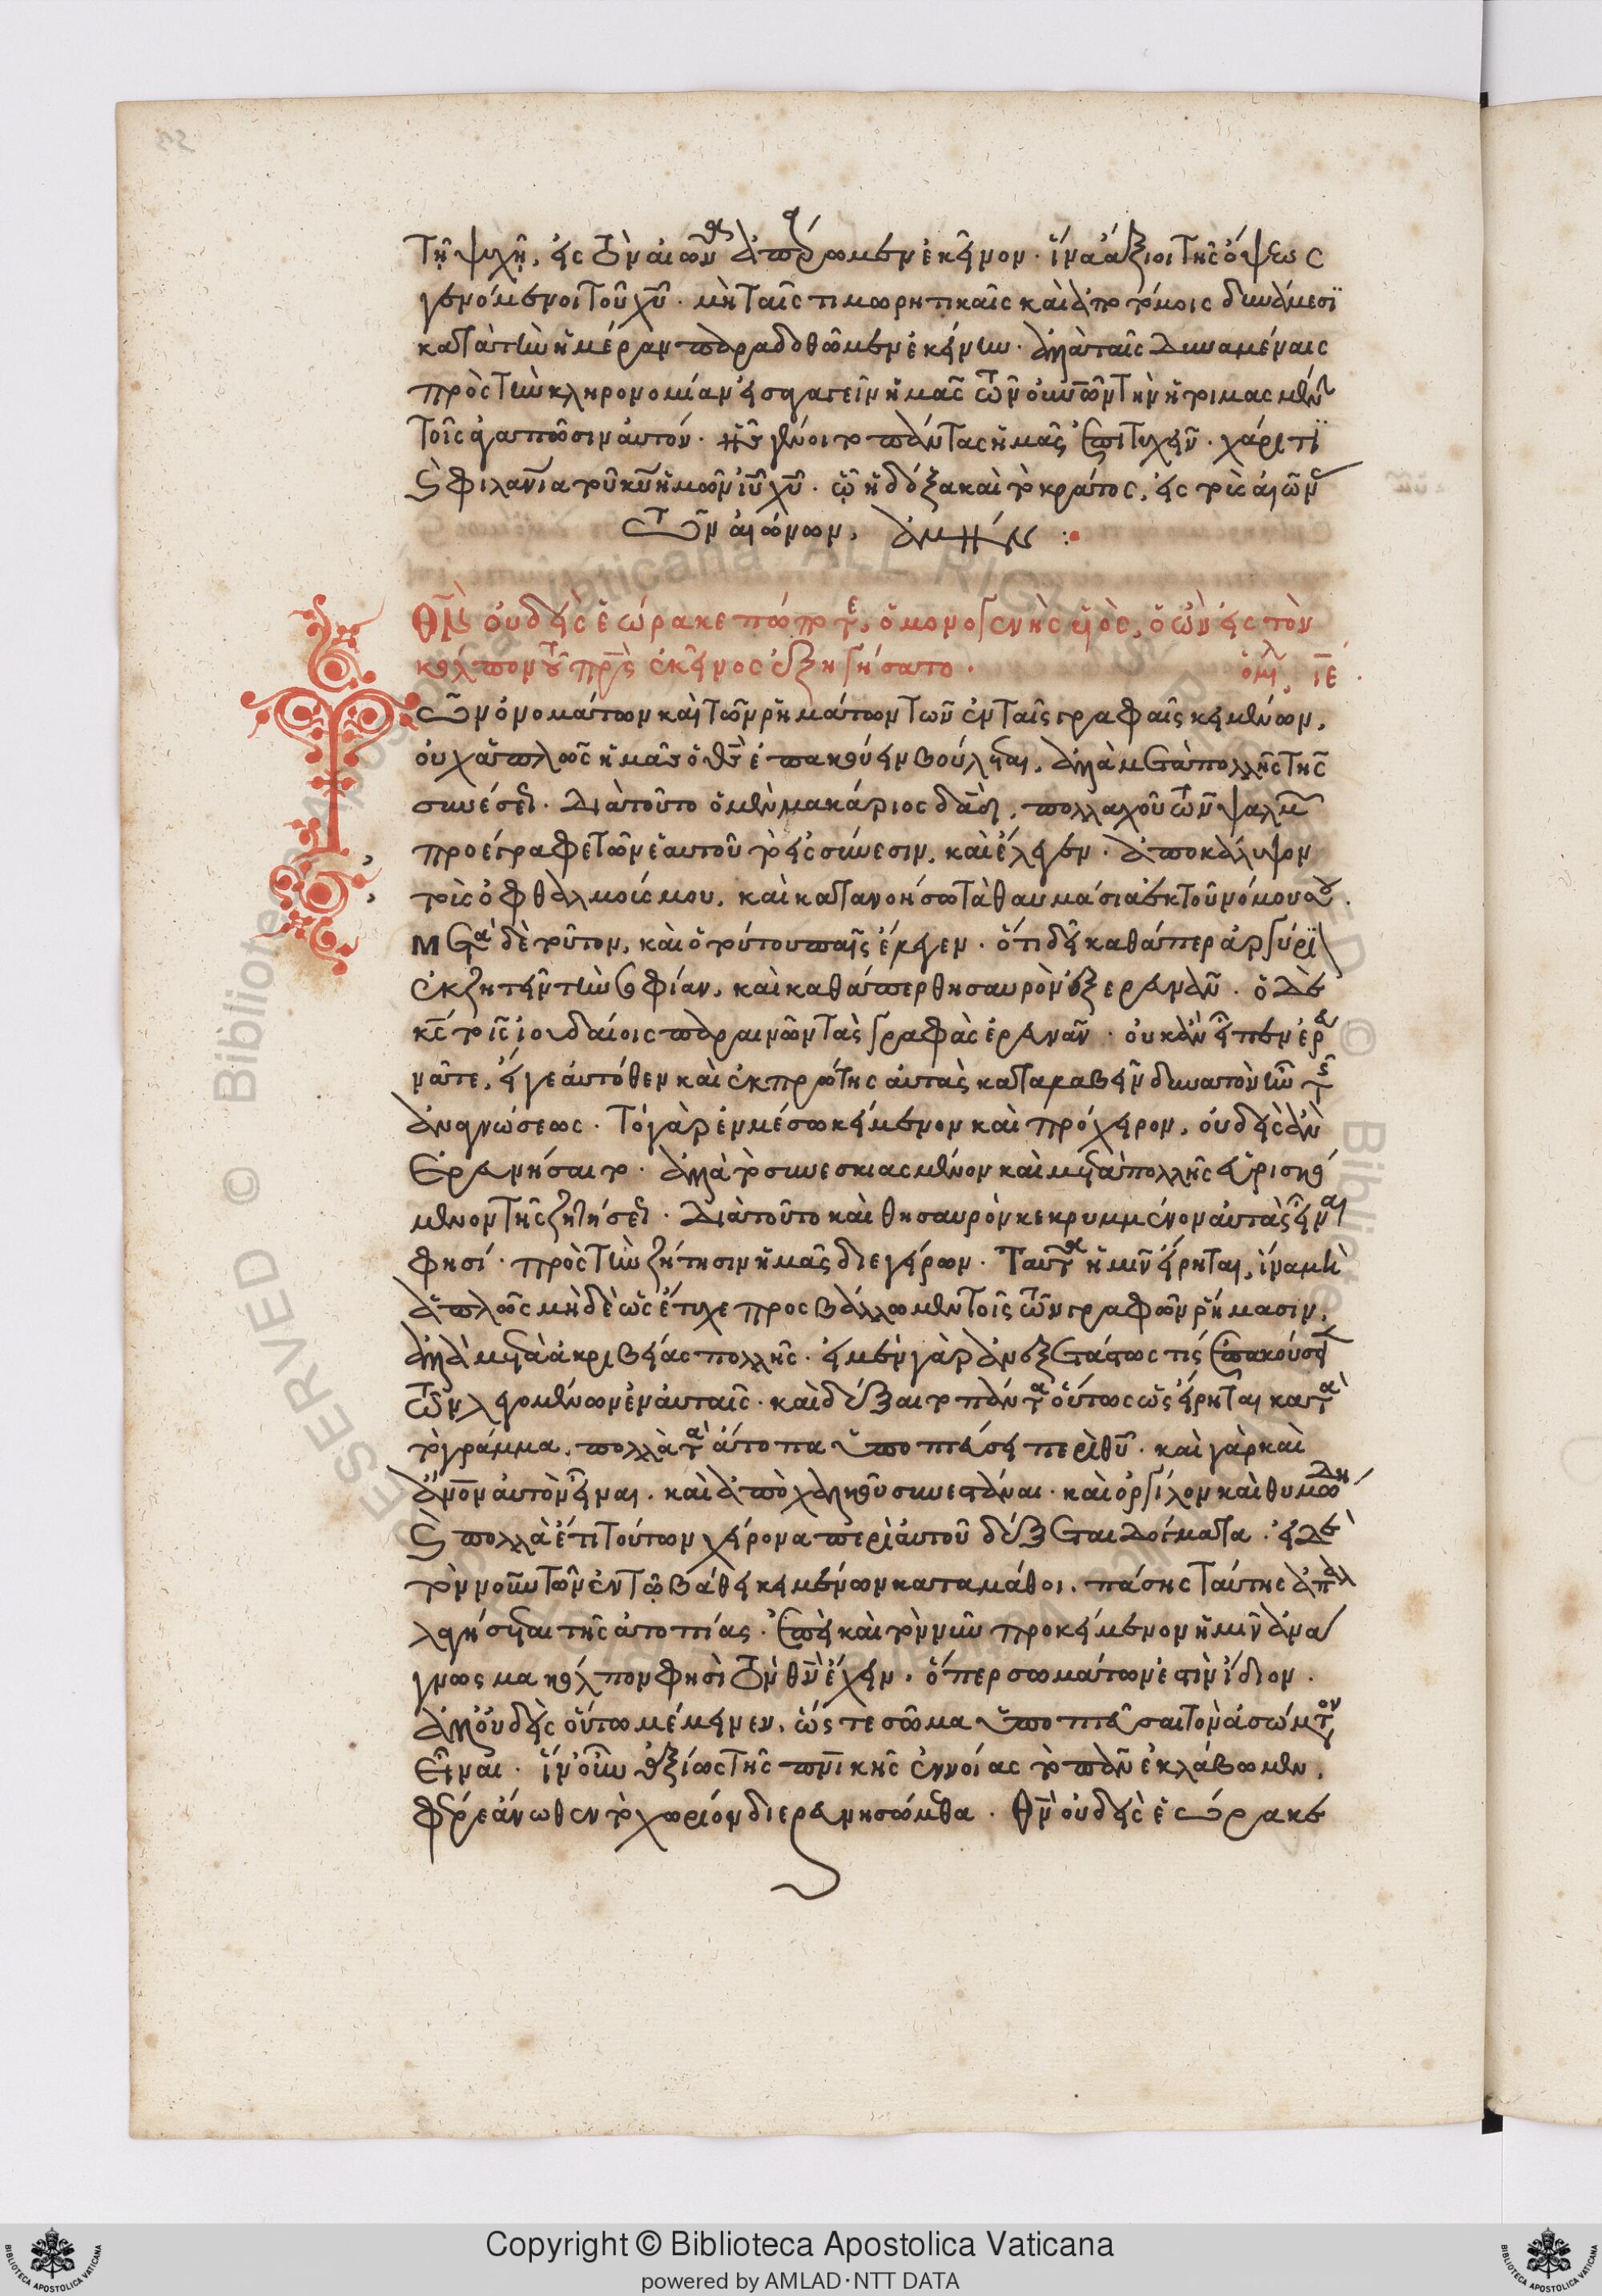 τῇ ψυχῇ, εἰς τὸν αἰῶνα ἀπαίρωμεν ἐκεῖνον. ἵνα ἄξιοι τῆς ὄψεως
γενόμενοι τοῦ χῦ. μὴ ταῖς τιμωρητικαῖς καὶ ἀποτόμοις δυνάμεσι
κατὰ τὴν ἡμέραν παραδοθῶμεν ἐκείνην. ἀλλὰ ταῖς δυναμέναις
πρὸς τὴν κληρονομίαν εἰσαγαγεῖν ἡμᾶς τῶν οὐνῶν τὴν ἡτοιμασμένην
τοῖς ἀγαπῶσιν αὐτόν. ἧς γένοιτο πάντας ἡμᾶς ἐπιτυχεῖν. χάριτι
καὶ φιλανΐα τοῦ κῦ ἡμῶν ἰῦ χῦ. ᾧ ἡ δόξα καὶ τὸ κράτος, εἰς τοὺς αἰῶνας
τῶν αἰώνων, ἀμήν :
Θν οὐδεὶς ἑώρακε πώποτε, ὁ μονογενὴς υἱὸς, ὁ ὢν εἰς τὸν
κόλπον τοῦ πρς ἐκεῖνος ἐξηγήσατο. ὁμιλ ιε.
Τῶν ὀνομάτων καὶ τῶν ῥημάτων τῶν ἐν ταῖς γραφαῖς κειμένων,
οὐχ ἁπλῶς ἡμᾶς ὁ θς ἐπακούειν βούλεται, ἀλλὰ μετὰ πολλῆς τῆς
συνέσεως. διὰ τοῦτο ὁ μὲν μακάριος δαδ, πολλαχοῦ τῶν ψαλμῶν
προέγραφε τῶν ἑαυτοῦ τὸ εἰς σύνεσιν, καὶ ἔλεγεν. ἀποκάλυψον
τοὺς ὀφθαλμούς μου, καὶ κατανοήσω τὰ θαυμάσια ἐκ τοῦ νόμου σου.
μετὰ δὲ τοῦτον, καὶ ὁ τούτου παῖς ἔλεγεν. ὅτι δεῖ καθάπερ ἀργύριον
ἐκζητεῖν τὴν σοφίαν, καὶ καθάπερ θησαυρὸν ἐξερευνᾶν. ὁ δὲ
κς τοῖς ἰουδαίοις παραινῶν τὰς γραφὰς ἐρευνᾶν. οὐκ ἂν εἶπεν ἐρευ
νᾶτε, εἴγε αὐτόθεν καὶ ἐκ πρώτης αὐτὰς καταλαβεῖν δυνατὸν ἦν τῆς
ἀναγνώσεως. τὸ γὰρ ἐν μέσῳ κείμενον καὶ πρόχειρον, οὐδεὶς ἂν
ἐρευνήσαιτο. ἀλλὰ τὸ συνεσκιασμένον καὶ μετὰ πολλῆς εὑρισκό
μενον τῆς ζητήσεως. διὰ τοῦτο καὶ θησαυρὸν κεκρυμμένον αὐτὰς εἶναι
φησί. πρὸς τὴν ζήτησιν ἡμᾶς διεγείρων. ταῦτα ἡμῖν εἴρηται, ἵνα μὴ
ἁπλῶς μηδὲ ὡς ἔτυχε προσβάλλωμεν τοῖς τῶν γραφῶν ῥήμασιν.
ἀλλὰ μετὰ ἀκριβείας πολλῆς. εἰ μὲν γὰρ ἀνεξετάστως τίς ἐπακούσειε
τῶν λεγομένων ἐν αὐταῖς. καὶ δέξαιτο πάντα οὕτως ὡς εἴρηται κατὰ
τὸ γράμμα, πολλὰ τὰ ἄτοπα ὑποπτεύσει περὶ θῦ. καὶ γὰρ καὶ
ἄνον αὐτὸν εἶναι. καὶ ἀπὸ χαλκοῦ συνεστάναι. καὶ ὀργίλον καὶ θυμώδη
καὶ πολλὰ ἔτι τούτων χείρονα περὶ αὐτοῦ δέξεται δόγματα. εἰ δὲ
τὸν νοῦν τῶν ἐν τῷ βάθει κειμένων καταμάθοι, πάσης ταύτης ἀπαλ
λαγήσεται τῆς ἀτοπίας. ἐπεὶ καὶ τὸ νῦν προκείμενον ἡμῖν ἀνά
γνωσμα κόλπον φησὶ τὸν θν ἔχειν. ὅπερ σωμάτων ἐστὶν ἴδιον.
ἀλλ' οὐδεὶς οὕτω μέμηνεν, ὥστε σῶμα ὑποπτεῦσαι τὸν ἀσώματον
εἶναι. ἵν' οὖν ἀξίως τῆς πνικῆς ἐννοίας τὸ πᾶν ἐκλάβωμεν,
φέρε ἄνωθεν τὸ χωρίον διερευνησώμεθα. Θν οὐδεὶς ἑώρακε
Copyright © Biblioteca Apostolica Vaticana
powered by AMLAD·NTT DATA